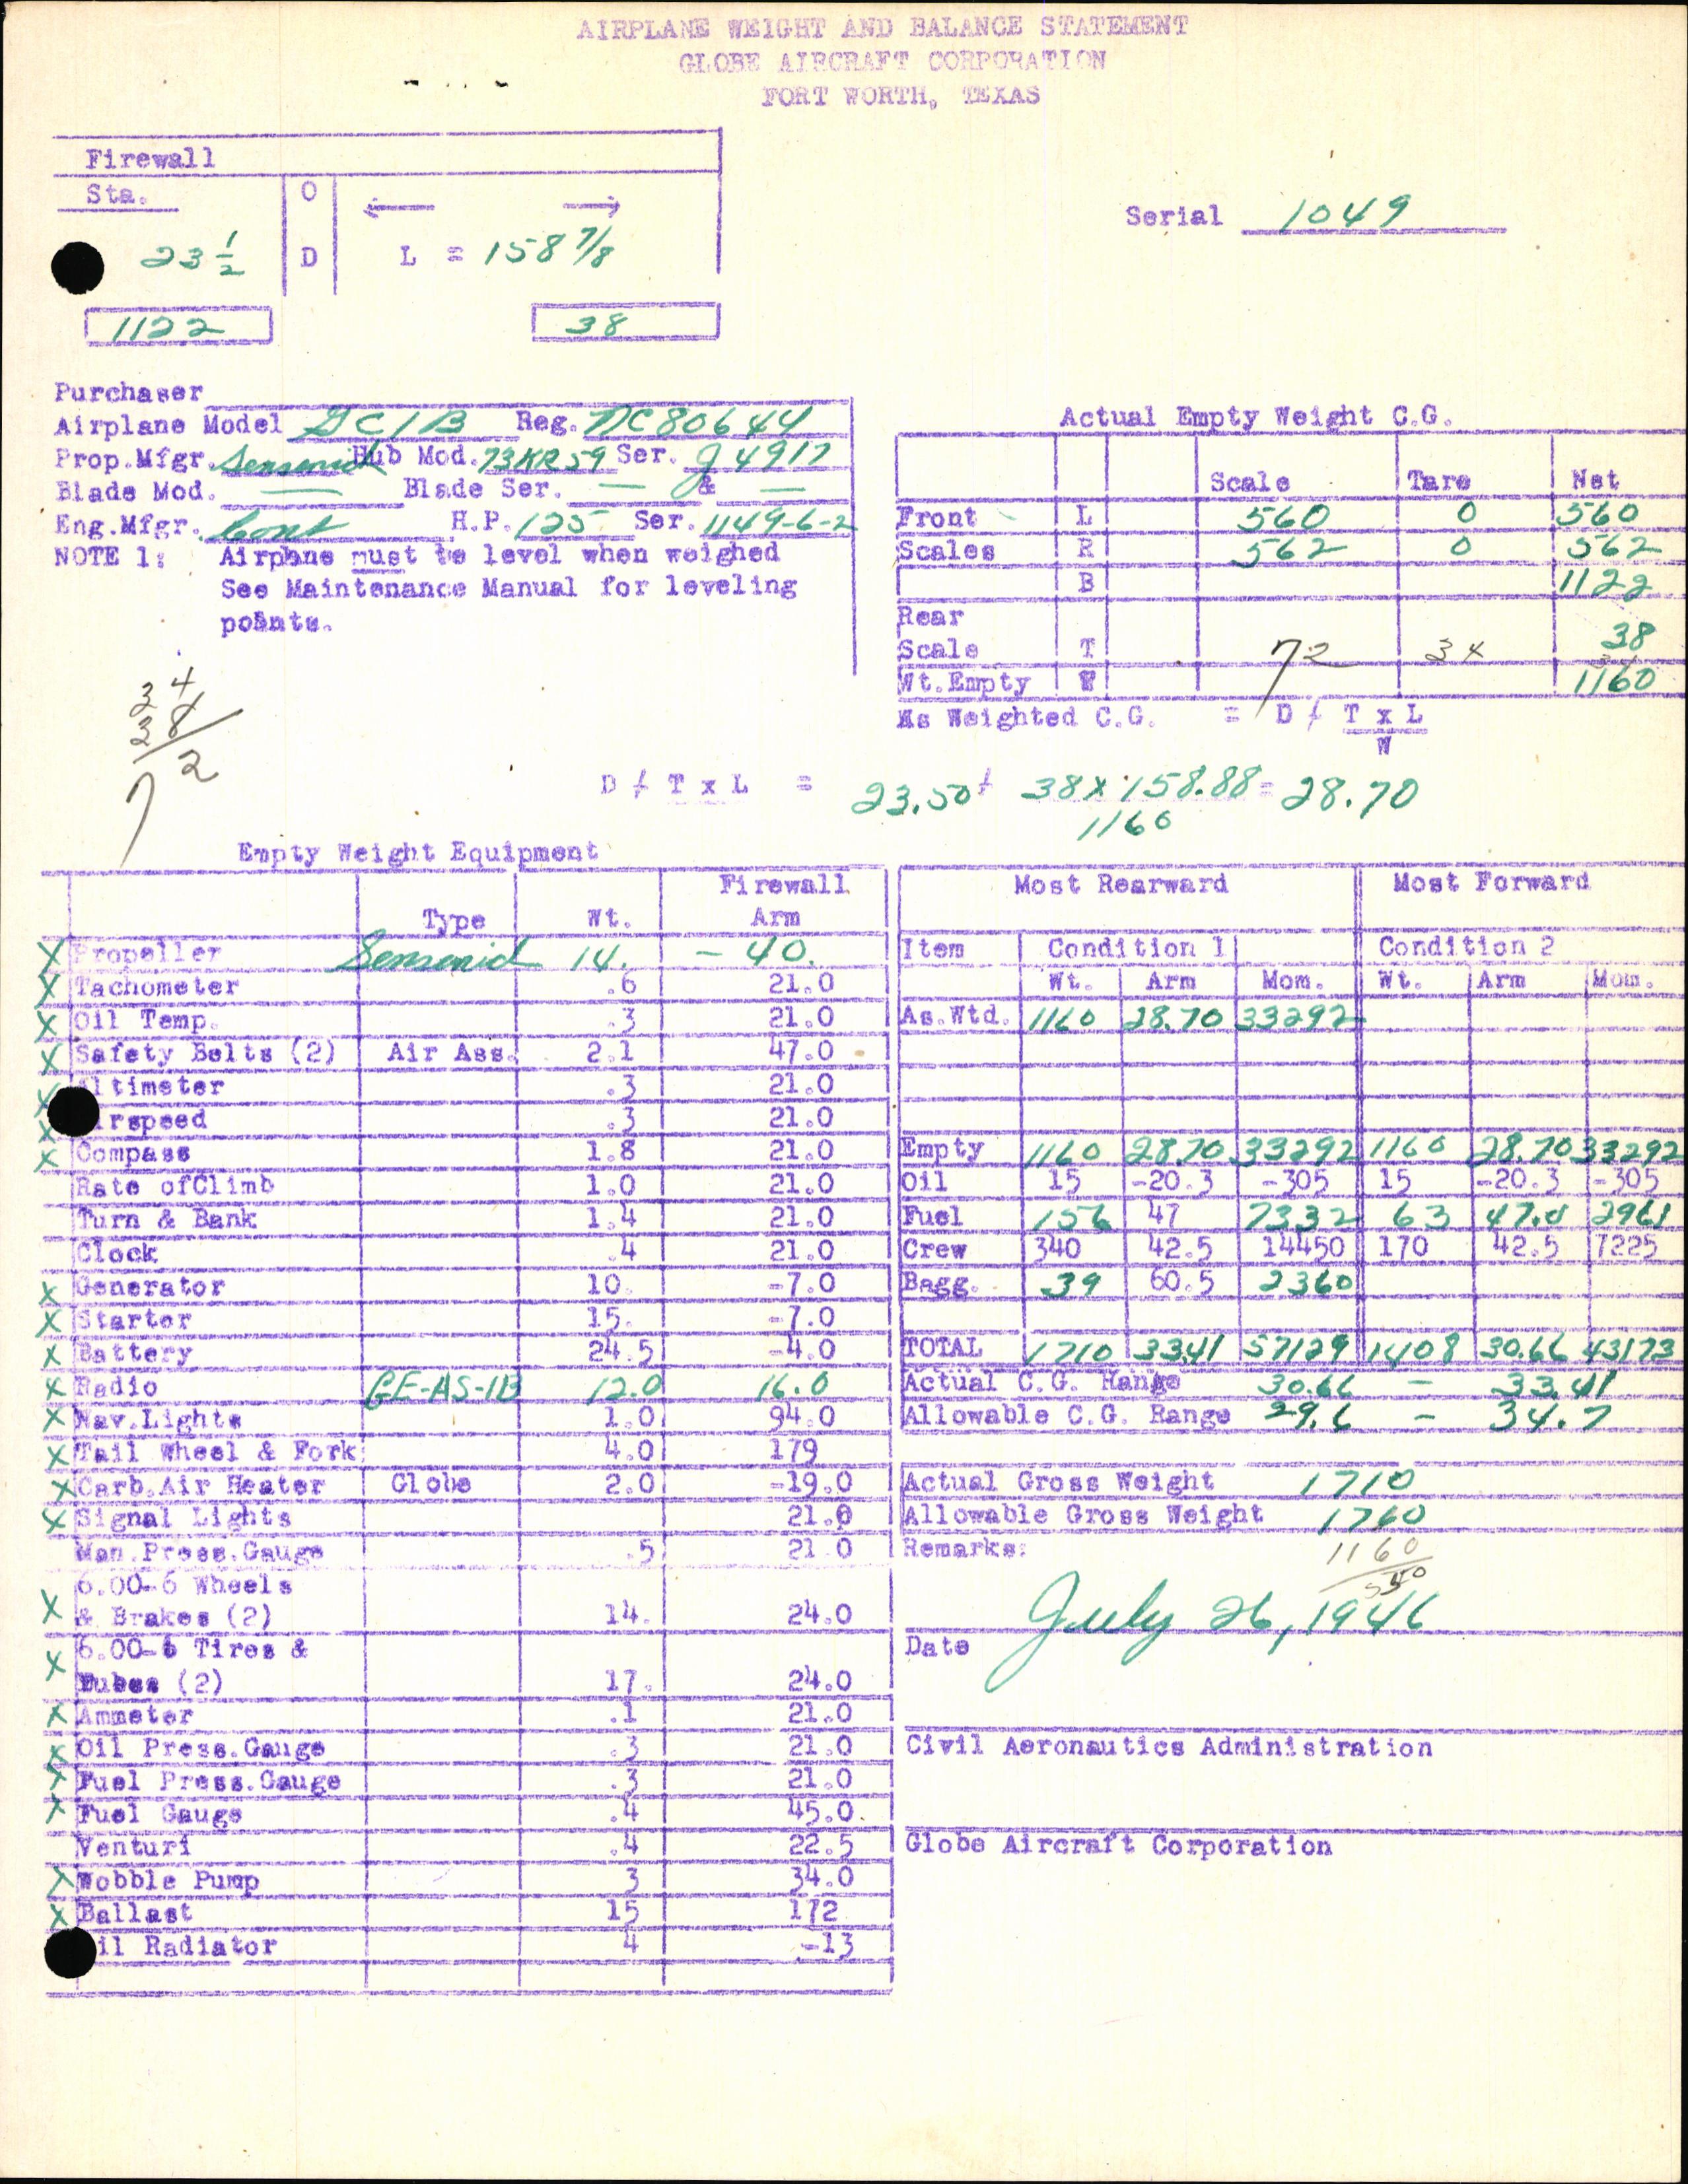 AIRPLANE WEIGHT AND BALANCE STATEMENT
GLOBE AIRCRAFT CORPORATION
FORT WORTH, TEXAS
Firewall
Sta. O ← →
23 1/2 D L = 158 7/8
Serial 1049
1122 38
Purchaser
Airplane Model GC1B Reg. NC80644
Prop.Mfgr. Sensenich Hub Mod. 73KR59 Ser. J4917
Blade Mod. — Blade Ser. — & —
Eng.Mfgr. Cont H.P. 125 Ser. 1149-6-2
NOTE 1: Airplane must be level when weighed
See Maintenance Manual for leveling
points.
34
38
72
Actual Empty Weight C.G.
Scale Tare Net
Front L 560 0 560
Scales R 562 0 562
B 1122
Rear 38
Scale T 72 34
Wt.Empty W 1160
As Weighted C.G. = D / T x L
W
D / T x L = 23.50 + 38 x 158.88 = 28.70
1160
Empty Weight Equipment
Firewall
Type Wt. Arm
X Propeller Sensenich 14. -40.
X Tachometer .6 21.0
X Oil Temp. .3 21.0
X Safety Belts (2) Air Ass. 2.1 47.0
X ltimeter .3 21.0
X rspeed .3 21.0
X Compass 1.8 21.0
Rate ofClimb 1.0 21.0
Turn & Bank 1.4 21.0
Clock .4 21.0
X Generator 10. -7.0
X Starter 15. -7.0
X Battery 24.5 -4.0
X Radio GE-AS-1B 12.0 16.0
X Nav.Lights 1.0 94.0
X Tail Wheel & Fork 4.0 179
X Carb.Air Heater Globe 2.0 -19.0
X Signal Lights 21.0
Man.Press.Gauge .5 21.0
6.00-6 Wheels
X & Brakes (2) 14. 24.0
6.00-6 Tires &
X Tubes (2) 17. 24.0
X Ammeter .1 21.0
X Oil Press.Gauge .3 21.0
X Fuel Press.Gauge .3 21.0
X Fuel Gauge .4 45.0
Venturi .4 22.5
X Wobble Pump 3 34.0
X Ballast 15 172
il Radiator 4 -13
Most Rearward Most Forward
Item Condition 1 Condition 2
Wt. Arm Mom. Wt. Arm Mom.
As.Wtd. 1160 28.70 33292
Empty 1160 28.70 33292 1160 28.70 33292
Oil 15 -20.3 -305 15 -20.3 -305
Fuel 156 47 7332 63 47.0 2961
Crew 340 42.5 14450 170 42.5 7225
Bagg. 39 60.5 2360
TOTAL 1710 33.41 57129 1408 30.66 43173
Actual C.G. Range 30.66 - 33.41
Allowable C.G. Range 29.6 - 34.7
Actual Gross Weight 1710
Allowable Gross Weight 1760
Remarks: 1160
550
July 26, 1946
Date
Civil Aeronautics Administration
Globe Aircraft Corporation